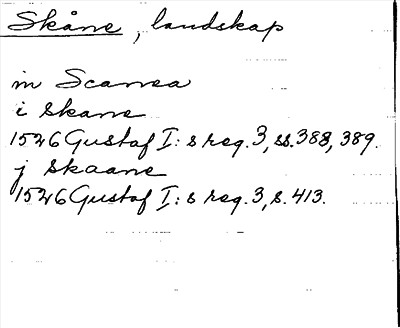 Skåne, landskap
in Scanea
i Skane
1526 Gustaf I:s reg. 3, ss. 388, 389.
j Skaane
1526 Gustaf I:s reg. 3, s. 413.